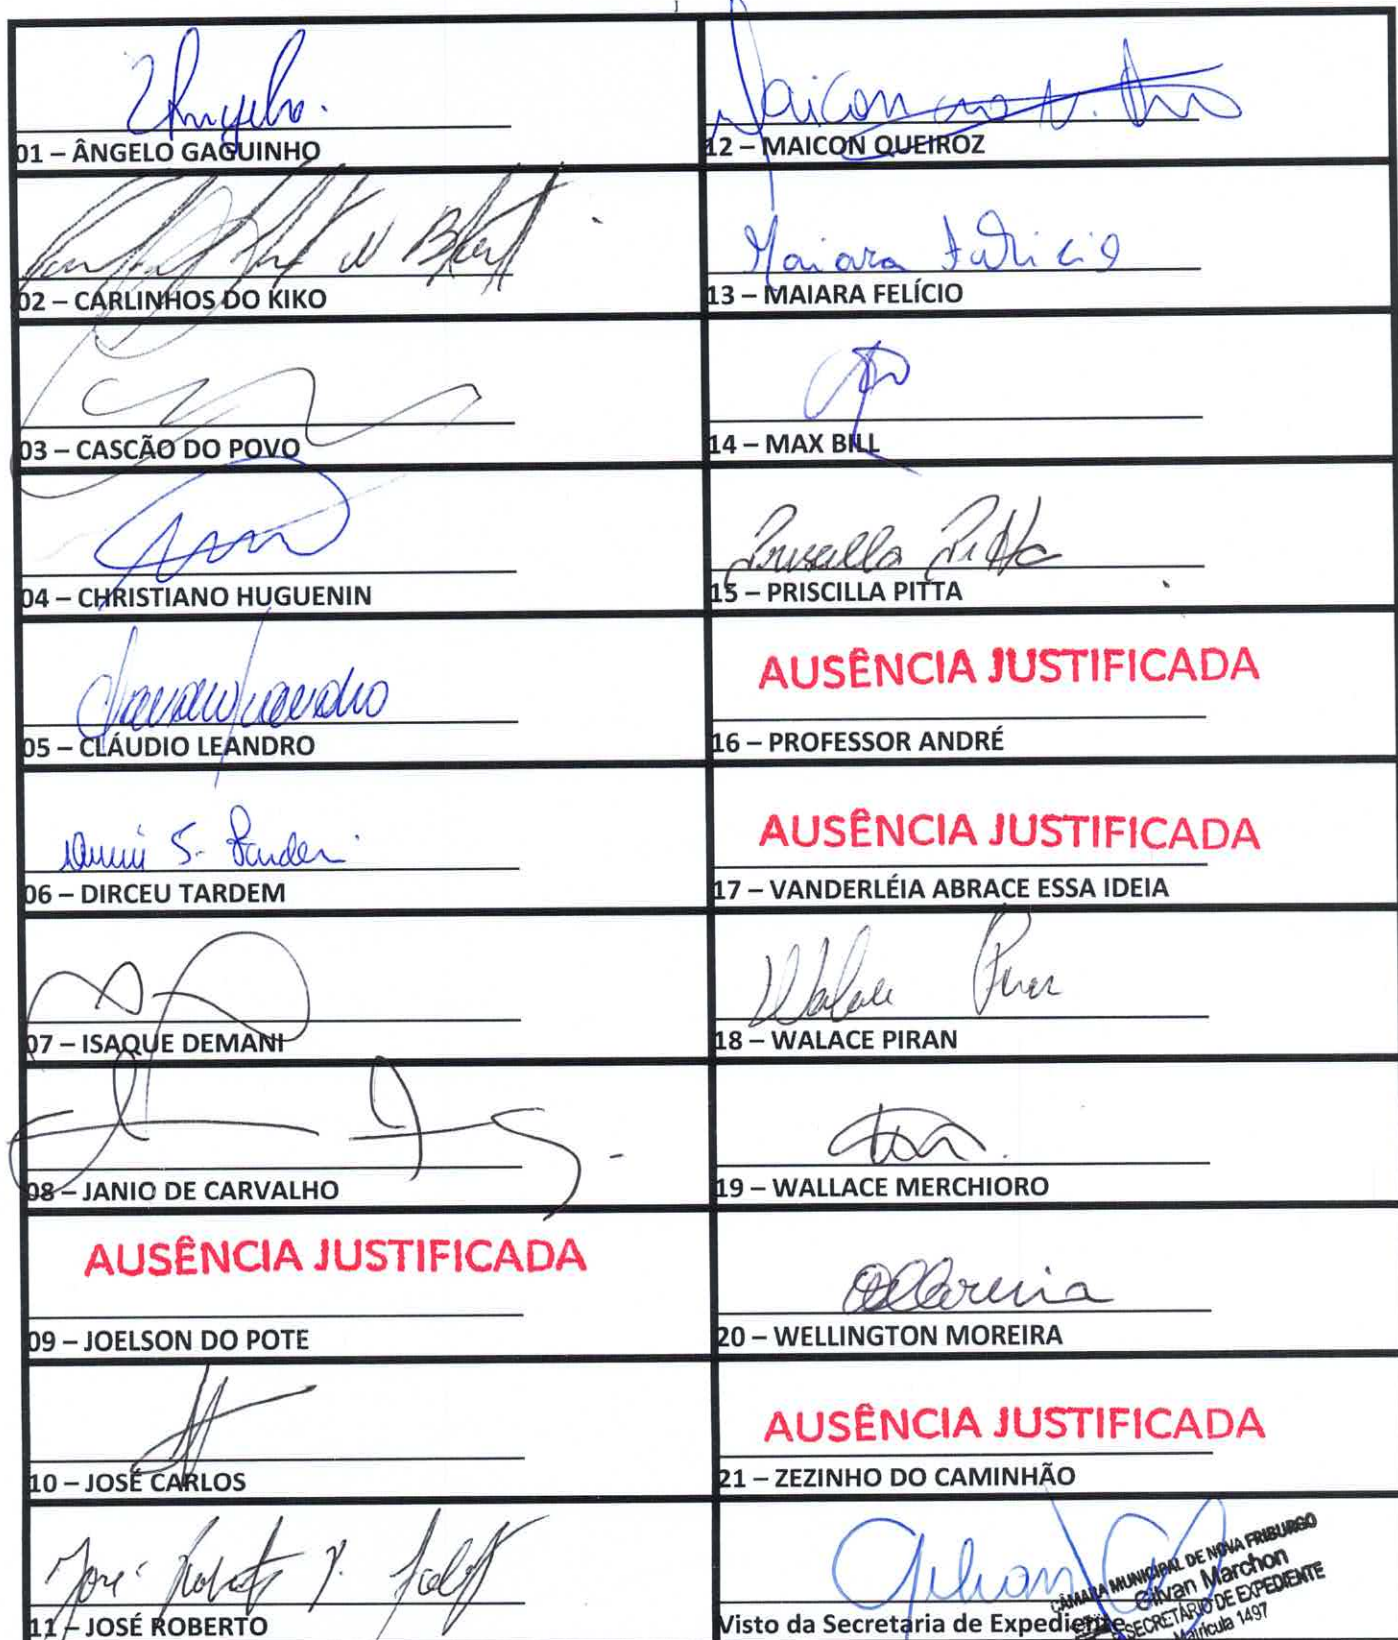 Angelo.
01 – ÂNGELO GAGUINHO
02 – CARLINHOS DO KIKO
03 – CASCÃO DO POVO
04 – CHRISTIANO HUGUENIN
05 – CLÁUDIO LEANDRO
06 – DIRCEU TARDEM
07 – ISAQUE DEMANI
08 – JANIO DE CARVALHO
AUSÊNCIA JUSTIFICADA
09 – JOELSON DO POTE
10 – JOSÉ CARLOS
José Roberto
11 – JOSÉ ROBERTO
Maicon
12 – MAICON QUEIROZ
Maiara Felicio
13 – MAIARA FELÍCIO
14 – MAX BILL
Priscilla Pitta
15 – PRISCILLA PITTA
AUSÊNCIA JUSTIFICADA
16 – PROFESSOR ANDRÉ
AUSÊNCIA JUSTIFICADA
17 – VANDERLÉIA ABRACE ESSA IDEIA
Walace
18 – WALACE PIRAN
19 – WALLACE MERCHIORO
20 – WELLINGTON MOREIRA
AUSÊNCIA JUSTIFICADA
21 – ZEZINHO DO CAMINHÃO
Visto da Secretaria de Expediente
CÂMARA MUNICIPAL DE NOVA FRIBURGO
Gilvan Marchon
SECRETÁRIO DE EXPEDIENTE
Matrícula 1497